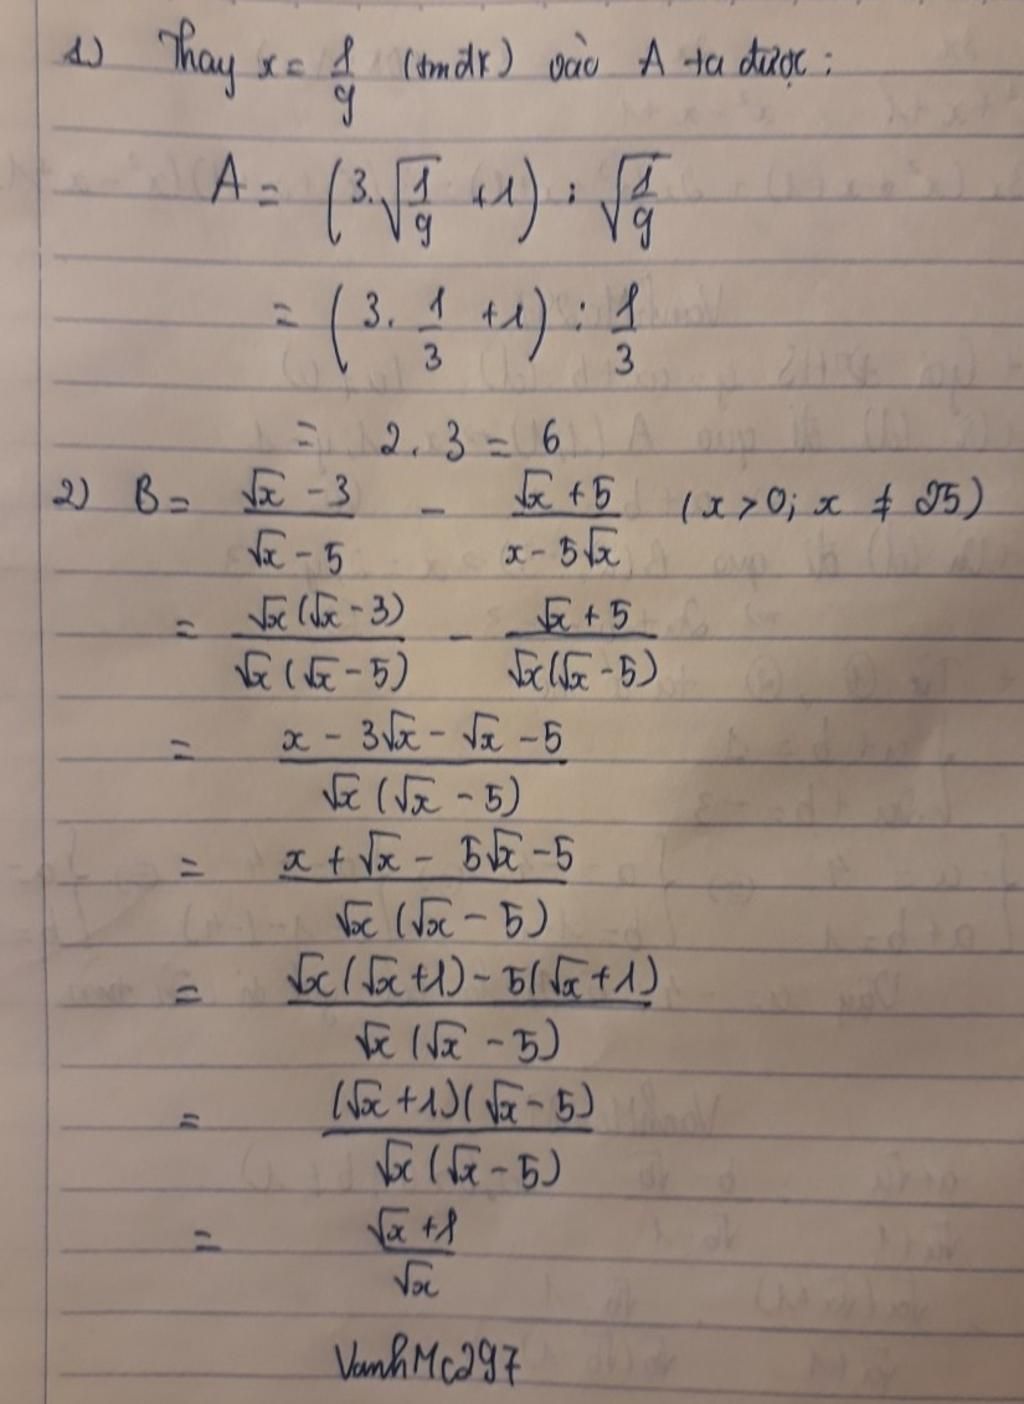 1) Thay x = 1/9 (tmđk) vào A ta được:
A = (3.√(1/9) + 1) : √(1/9)
= (3. 1/3 + 1) : 1/3
= 2. 3 = 6
2) B = (√x - 3)/(√x - 5) - (√x + 5)/(x - 5√x) (x > 0; x ≠ 25)
= √x(√x - 3)/√x(√x - 5) - (√x + 5)/√x(√x - 5)
= (x - 3√x - √x - 5)/√x(√x - 5)
= (x + √x - 5√x - 5)/√x(√x - 5)
= (√x(√x + 1) - 5(√x + 1))/√x(√x - 5)
= (√x + 1)(√x - 5)/√x(√x - 5)
= (√x + 1)/√x
VanhMc297